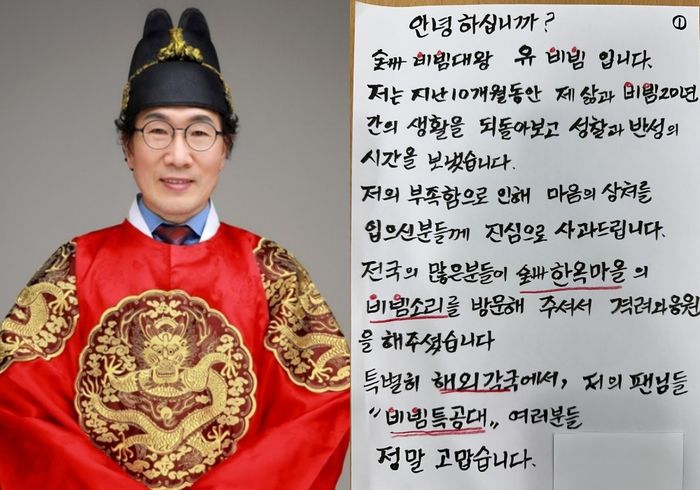 안녕하십니까?
①
全州 비빔대왕 유 비빔 입니다.
저는 지난 10개월동안 제 삶과 비빔20년
간의 생활을 되돌아보고 성찰과 반성의
시간을 보냈습니다.
저의 부족함으로 인해 마음의 상처를
입으신분들께 진심으로 사과드립니다.
전국의 많은분들이 全州한옥마을의
비빔소리를 방문해 주셔서 격려와응원
을 해주셨습니다
특별히 해외각국에서, 저의 팬님들
"비빔특공대" 여러분들
정말 고맙습니다.